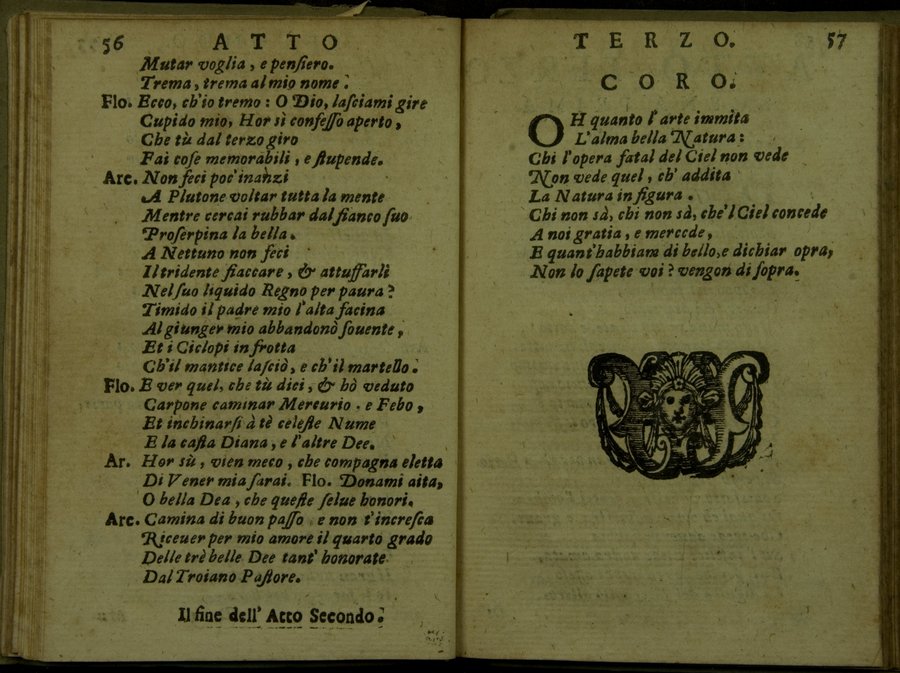 56 ATTO
Mutar voglia, e penſiero.
Trema, trema al mio nome.
Flo. Ecco, ch'io tremo: O Dio, laſciami gire
Cupido mio, Hor sì confeſſo aperto,
Che tù dal terzo giro
Fai coſe memorabili, e ſtupende.
Arc. Non feci poc'inanzi
A Plutone voltar tutta la mente
Mentre cercai rubbar dal fianco ſuo
Proſerpina la bella.
A Nettuno non feci
Il tridente fiaccare, & attuffarli
Nel ſuo liquido Regno per paura?
Timido il padre mio l'alta facina
Al giunger mio abbandonò ſouente,
Et i Ciclopi in frotta
Ch'il mantice laſciò, e ch'il martello.
Flo. E ver quel, che tù dici, & hò veduto
Carpone caminar Mercurio. e Febo,
Et inchinarſi à tè celeſte Nume
E la caſta Diana, e l'altre Dee.
Ar. Hor sù, vien meco, che compagna eletta
Di Vener mia ſarai. Flo. Donami aita,
O bella Dea, che queſte ſelue honori.
Arc. Camina di buon paſſo e non t'increſca
Riceuer per mio amore il quarto grado
Delle trè belle Dee tant' honorate
Dal Troiano Paſtore.
Il fine dell' Atto Secondo.
TERZO. 57
CORO.
OH quanto l'arte immita
L'alma bella Natura:
Chi l'opera fatal del Ciel non vede
Non vede quel, ch' addita
La Natura in figura.
Chi non sà, chi non sà, che'l Ciel concede
A noi gratia, e mercede,
E quant'habbiam di bello, e dichiar opra,
Non lo ſapete voi? vengon di ſopra.